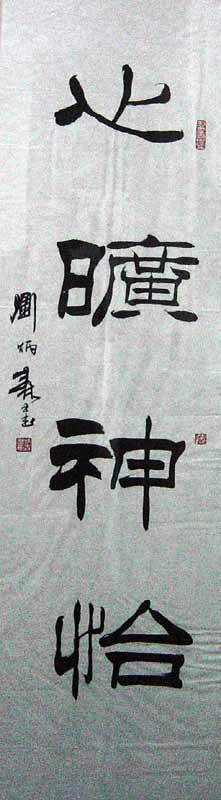 心曠神怡
劉炳森